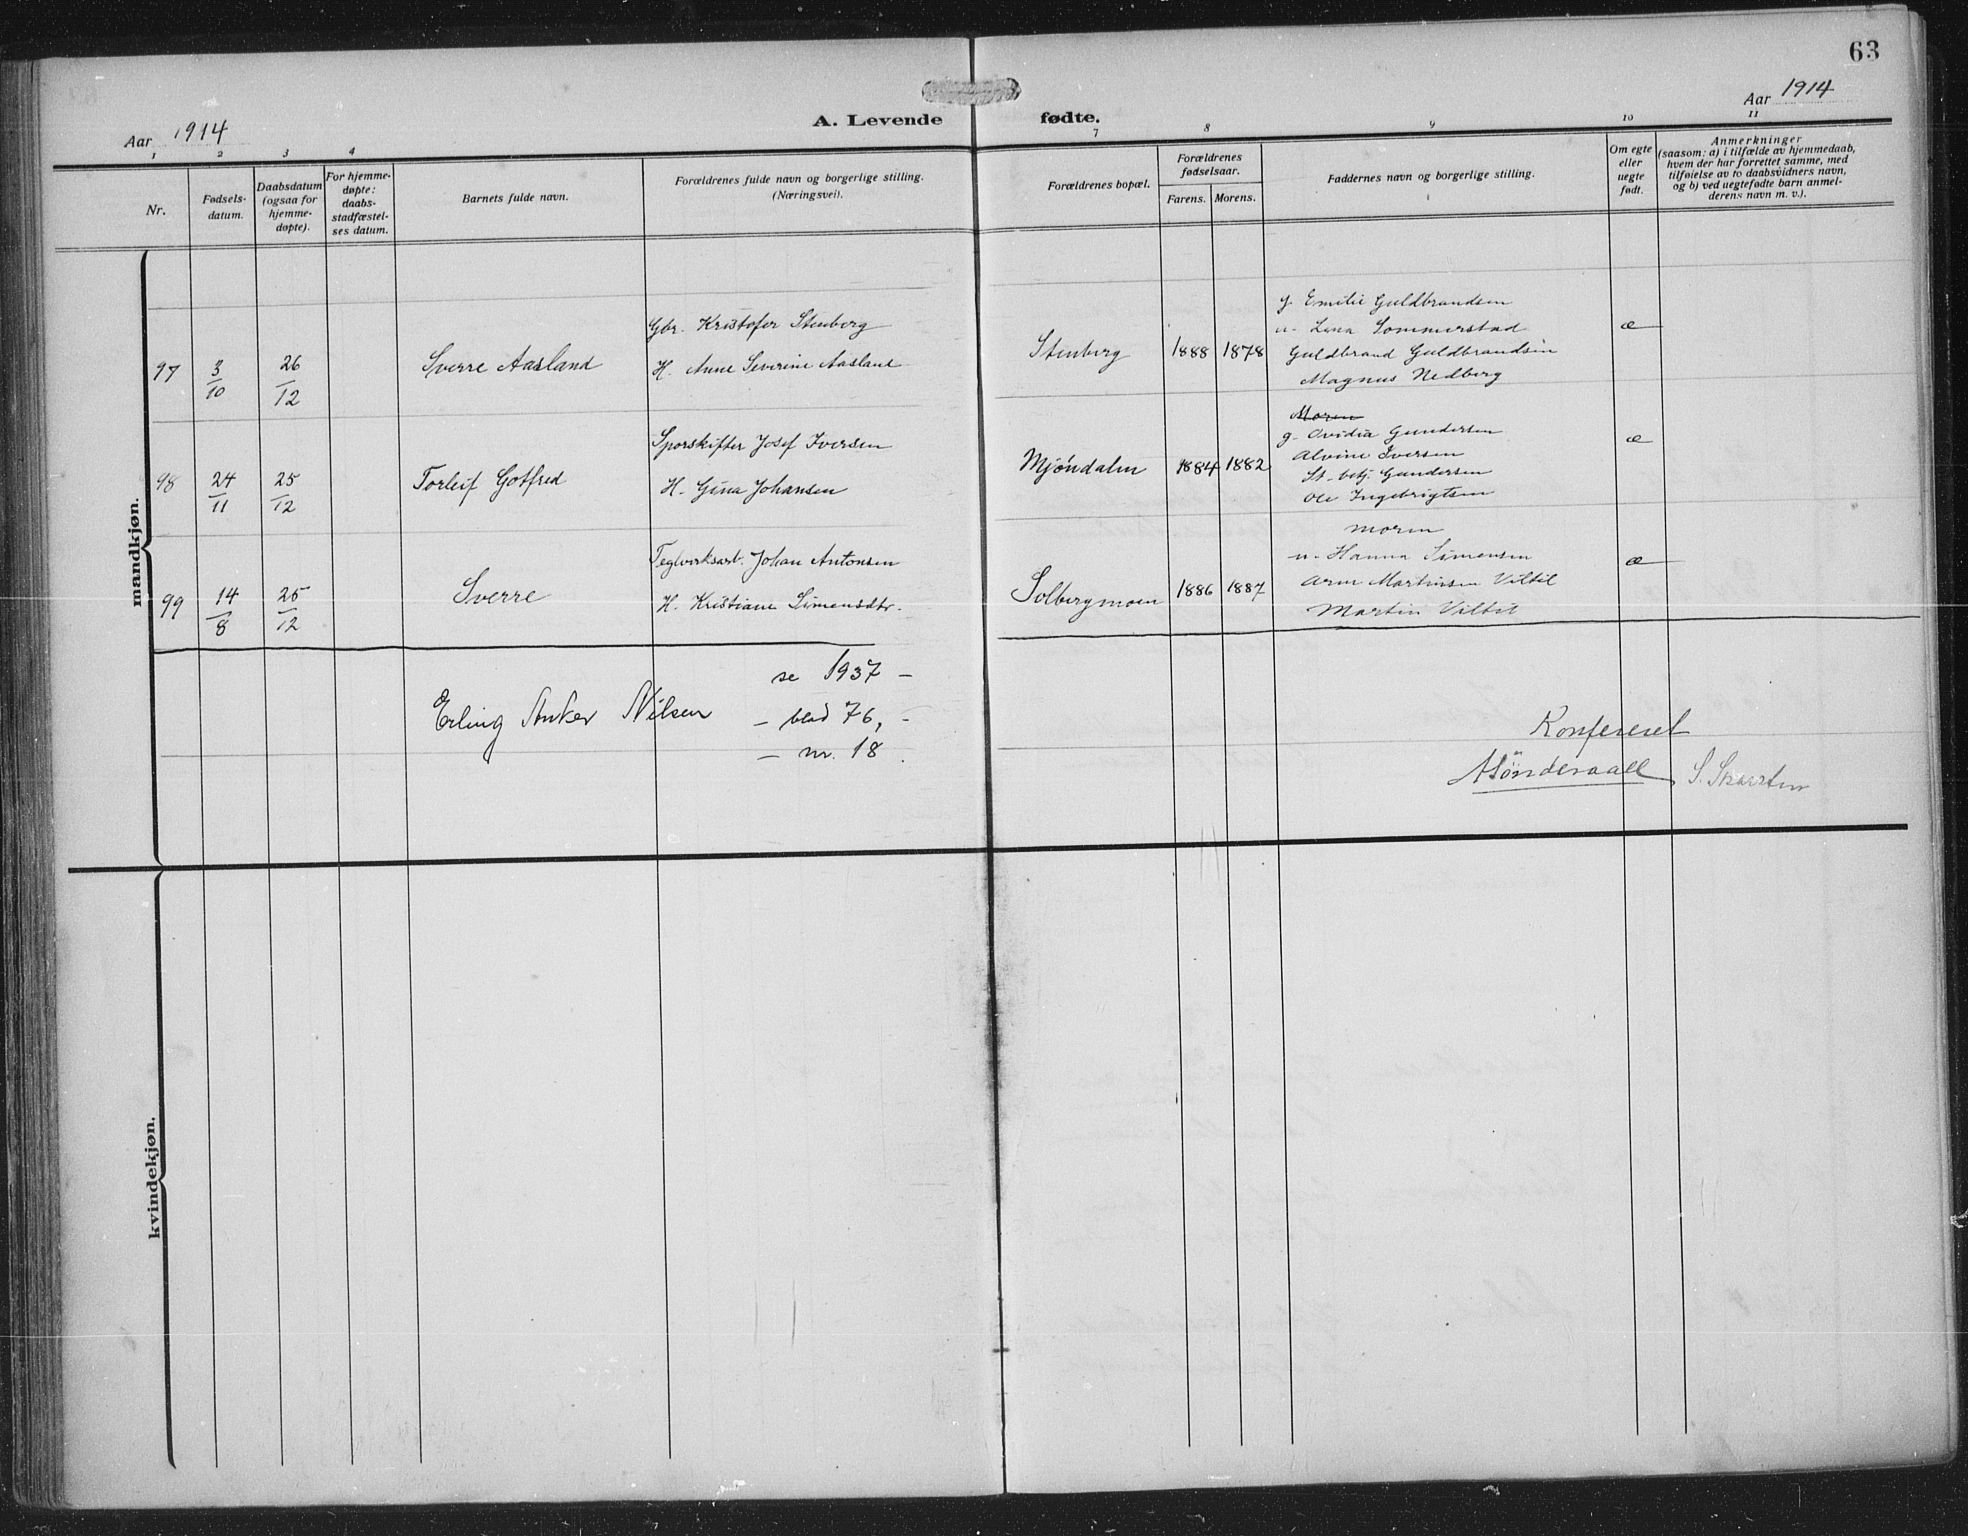 63
Aar 1914
A. Levende fødte.
Aar 1914
1 2 3 4 7 8 9 10 11
Nr.
Fødsels-
datum.
Daabsdatum
(ogsaa for
hjemme-
døpte).
For hjemme-
døpte:
daabs-
stadfæstel-
ses datum.
Barnets fulde navn.
Forældrenes fulde navn og borgerlige stilling.
(Næringsvei).
Forældrenes bopæl.
Forældrenes
fødselsaar.
Farens. Morens.
Faddernes navn og borgerlige stilling.
Om egte
eller
uegte
født.
Anmerkninger
(saasom: a) i tilfælde av hjemmedaab,
hvem der har forrettet samme, med
tilføielse av to daabsvidners navn,
og b) ved uegtefødte barn anmel-
derens navn m. v.).
mandkjøn.
97 3/10 26/12 Sverre Aasland
Gbr. Kristofer Stenberg
H. Anne Severine Aasland
Stenberg 1888 1878
g. Emilie Guldbrandsen
u. Lina Sommerstad
Guldbrand Guldbrandsen
Magnus Nedberg
æ
98 24/11 25/12 Torleif Gotfred
Sporskifter Josef Iversen
H. Gina Johansen
Mjøndalen 1884 1882
Moren
g. Ovidia Gundersen
Alvine Iversen
St. betj. Gundersen
Ole Ingebrigtsen
æ
99 14/8 25/12 Sverre
Teglverksarb. Johan Antonsen
H. Kristiane Simensdtr.
Solbergmoen 1886 1887
moren
u. Hanna Simensen
Arne Martinsen Viltil
Martin Viltil
æ
Erling Anker Nilsen
se 1937 –
– blad 76, –
– nr. 18.
Konfereret
ASønderaall S. Skarsten
kvindekjøn.